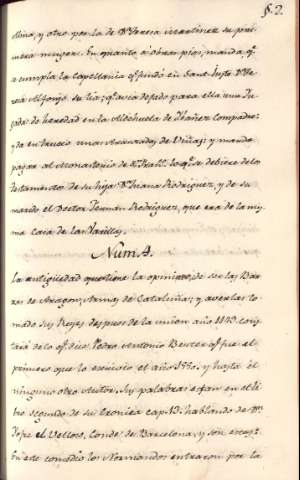 §.2.
dino, y otro por la de D.ª Teresa Martinez su pri-
mera muger. En quanto a obras pias, manda q.e
se cumpla la Capellania q.e fundó en Sant
Alfonso, su tia; q.e avia dejado para ella una
de heredad en la Aldehuela de Ibañez Compadre;
y da en trueco unas de Viñas; y manda
pagar al Monasterio de lo q.e se debiere de los
testamentos de su hija D.ª Juana Rodriguez, y de su
marido, el Doctor Fernan Rodriguez, que era de la mis-
ma Casa de las Varillas.
Num. 4.
La antigüedad que tiene la opinion, de ser las Bar-
ras de Aragon, Armas de Cataluña; y averlas to-
mado sus Reyes despues de la union año 1143. cons-
tará de lo q.e dice Pedro Antonio Beuter q.e fue el
primero que lo escrivió el año 1550. y hasta él
ninguno otro Autor. Sus palabras estan en el li-
bro segundo de su Cronica cap. 13. hablando de
Jofre el Velloso, Conde de Barcelona, y son estas:
En este comedio los Normandos entraron por la